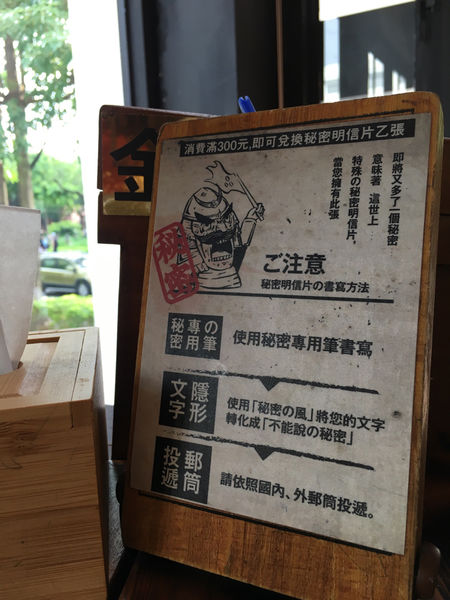 消費滿300元,即可兌換秘密明信片乙張
當您擁有此張
特殊の秘密明信片,
意味著 這世上
即將又多了一個秘密
秘密
ご注意
秘密明信片の書寫方法
秘密專用の筆
使用秘密專用筆書寫
隱形文字
使用「秘密の風」將您的文字
轉化成「不能說の秘密」
郵筒投遞
請依照國內、外郵筒投遞。